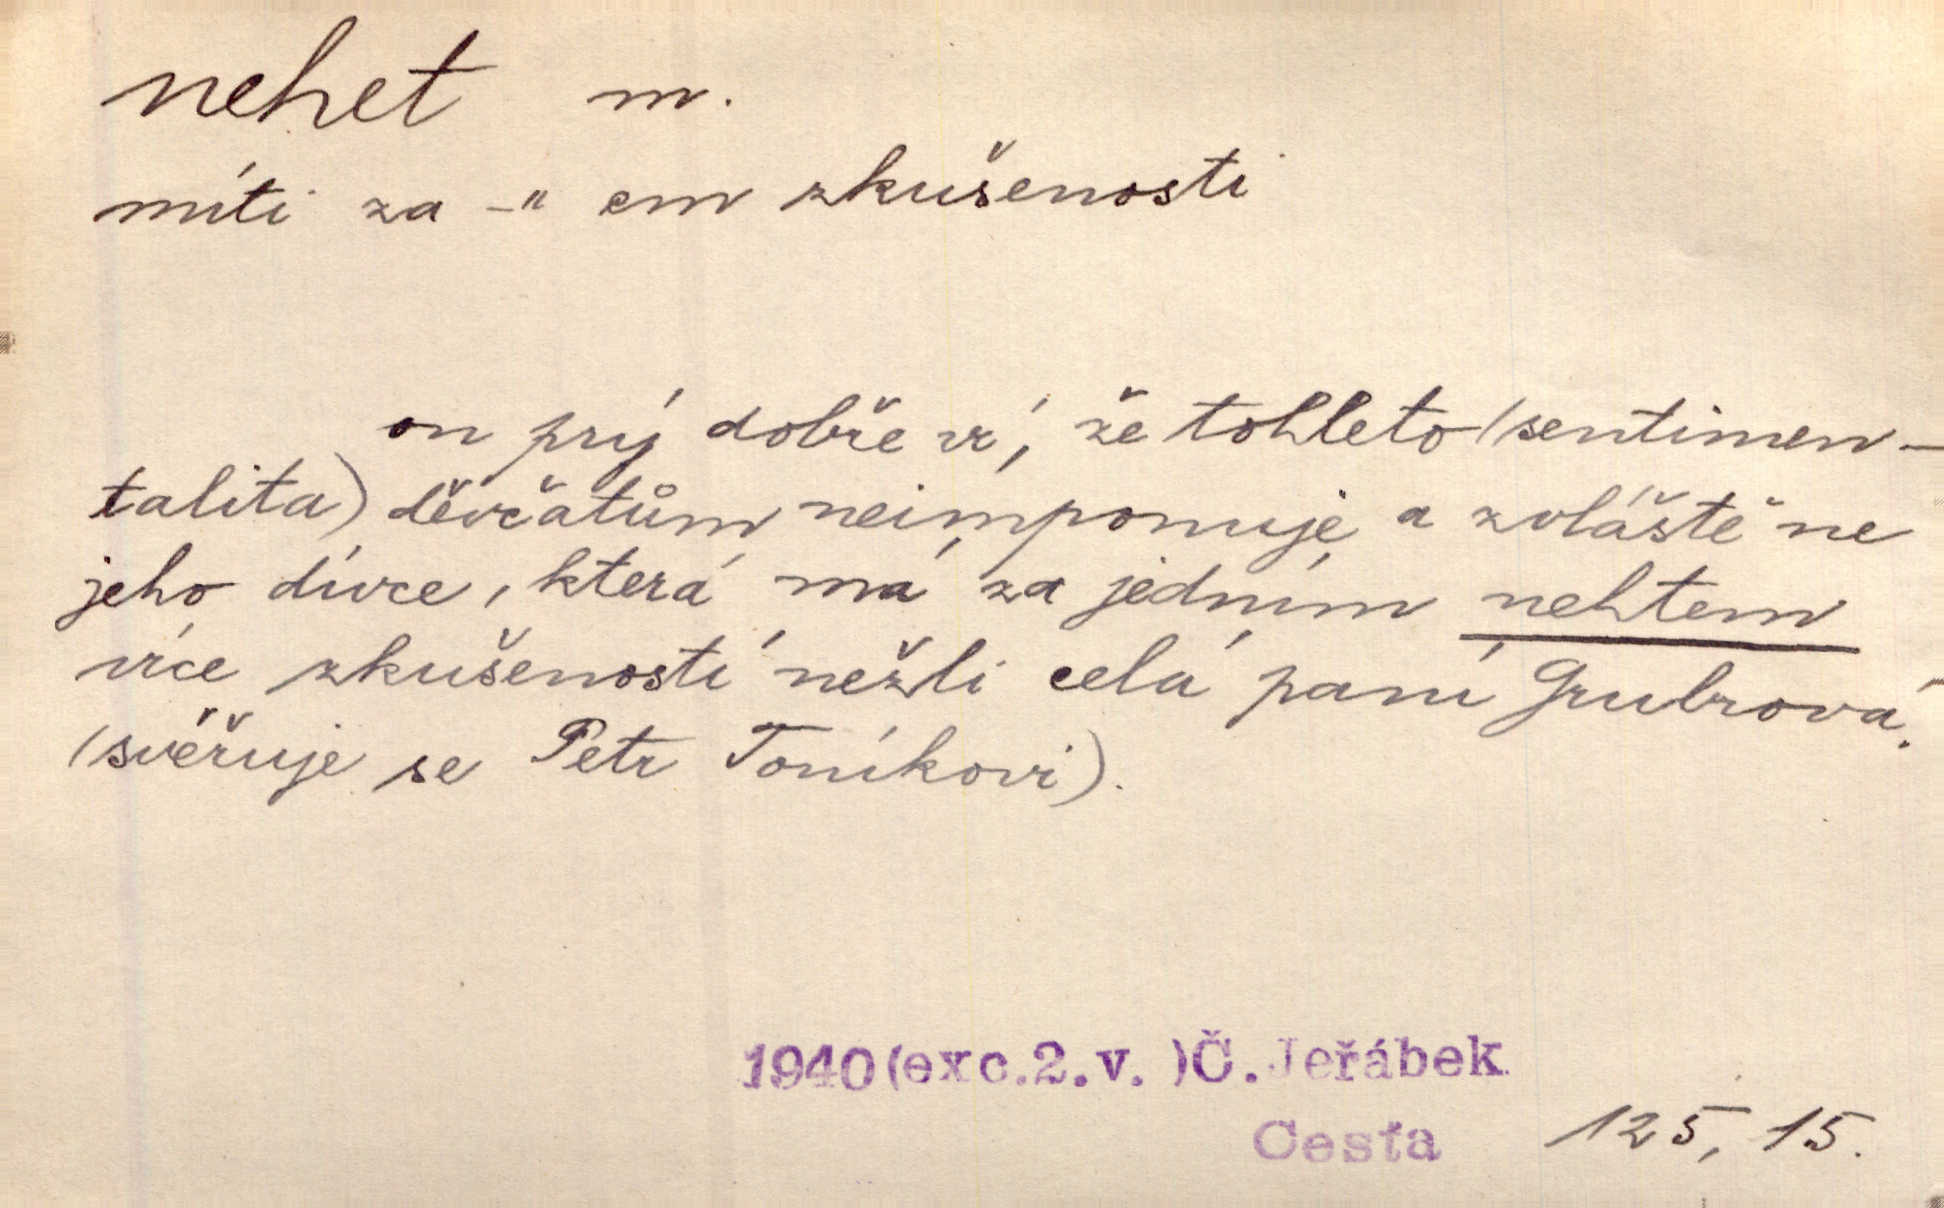 nehet m.
míti za -" em zkušenosti
on prý dobře ví, že tohleto (sentimen-
talita) děvčatům neimponuje a zvláště ne
jeho dívce, která má za jedním nehtem
více zkušeností nežli celá paní Grubrová.
(svěřuje se Petr Toníkovi).
1940(exc.2.v. )Č.Jeřábek
Cesta 125, 15.